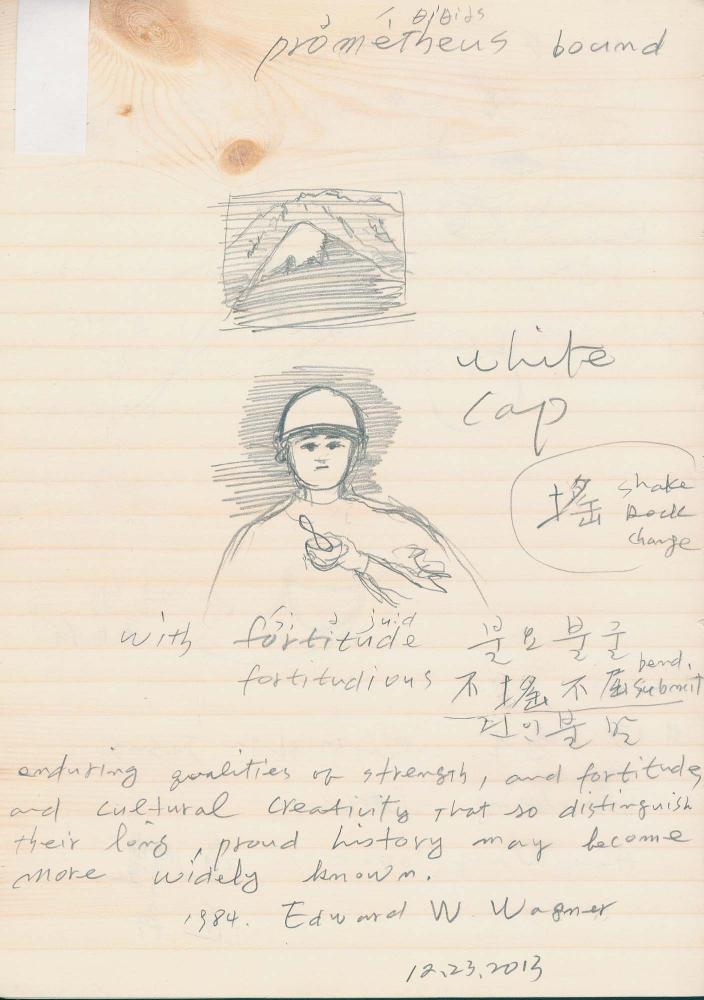 prometheus bound
white
cap
搖 shake
rock
change
with fortitude 불요불굴
fortitudious 不搖不屈 bend, submit
enduring qualities of strength, and fortitude,
and cultural creativity that so distinguish
their long, proud history may become
more widely known.
1984. Edward W. Wagner
12.23.2013